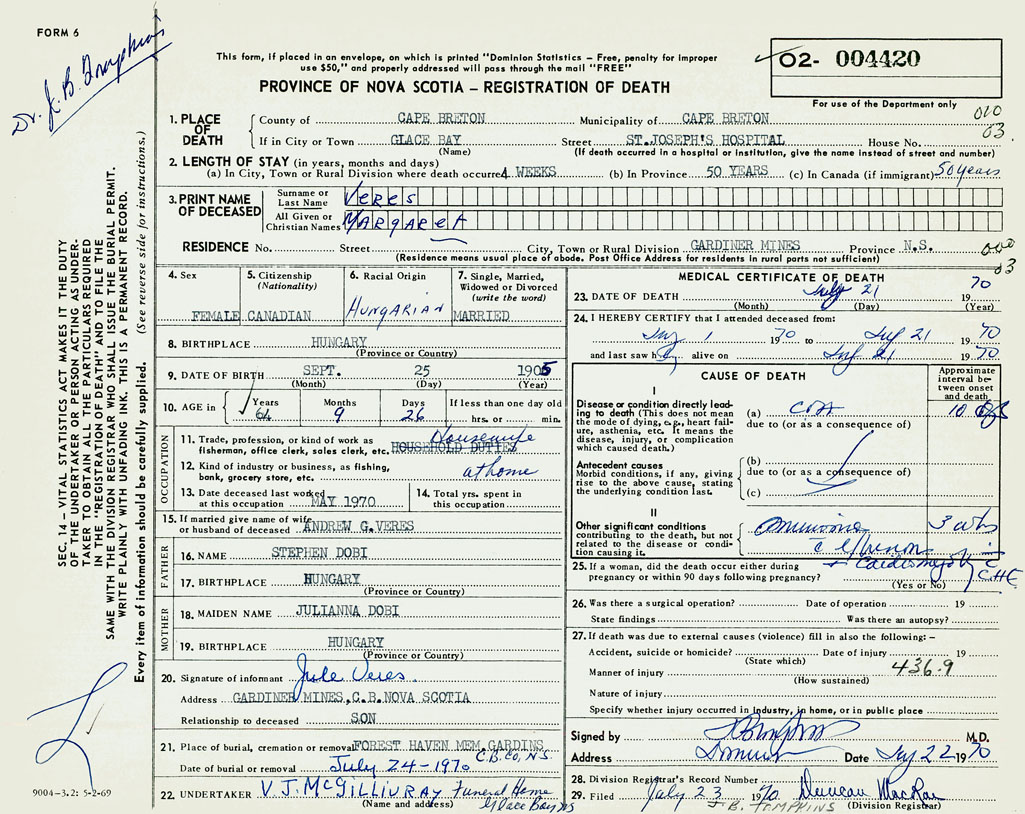 FORM 6
Dr. J. B. Tompkins
This form, if placed in an envelope, on which is printed "Dominion Statistics – Free, penalty for improper
use $50," and properly addressed will pass through the mail "FREE"
02- 004420
PROVINCE OF NOVA SCOTIA – REGISTRATION OF DEATH
For use of the Department only
SEC. 14 – VITAL STATISTICS ACT MAKES IT THE DUTY
OF THE UNDERTAKER OR PERSON ACTING AS UNDER-
TAKER TO OBTAIN ALL THE PARTICULARS REQUIRED
IN THE "REGISTRATION OF DEATH" AND TO FILE THE
SAME WITH THE DIVISION REGISTRAR WHO SHALL ISSUE THE BURIAL PERMIT.
WRITE PLAINLY WITH UNFADING INK. THIS IS A PERMANENT RECORD.
Every item of information should be carefully supplied. (See reverse side for instructions.)
1. PLACE OF DEATH
County of CAPE BRETON Municipality of CAPE BRETON
If in City or Town GLACE BAY Street ST.JOSEPH'S HOSPITAL House No. 03
(Name) (If death occurred in a hospital or institution, give the name instead of street and number)
2. LENGTH OF STAY (in years, months and days)
(a) In City, Town or Rural Division where death occurred 4 WEEKS (b) In Province 50 YEARS (c) In Canada (if immigrant) 50 years
3. PRINT NAME OF DECEASED
Surname or Last Name Veres
All Given or Christian Names MARgAReT
RESIDENCE No. Street City, Town or Rural Division GARDINER MINES Province N.S.
(Residence means usual place of abode. Post Office Address for residents in rural parts not sufficient) 03
4. Sex FEMALE
5. Citizenship (Nationality) CANADIAN
6. Racial Origin HUNgARIAN
7. Single, Married, Widowed or Divorced (write the word) MARRIED
8. BIRTHPLACE HUNGARY
(Province or Country)
9. DATE OF BIRTH SEPT. 25 1905
(Month) (Day) (Year)
10. AGE in Years 64 Months 9 Days 26 If less than one day old hrs. or min.
OCCUPATION
11. Trade, profession, or kind of work as fisherman, office clerk, sales clerk, etc. HOUSEHOLD DUTIES Housewife
12. Kind of industry or business, as fishing, bank, grocery store, etc. at home
13. Date deceased last worked at this occupation MAY 1970
14. Total yrs. spent in this occupation
15. If married give name of wife or husband of deceased ANDREW G.VERES
FATHER
16. NAME STEPHEN DOBI
17. BIRTHPLACE HUNGARY
(Province or Country)
MOTHER
18. MAIDEN NAME JULIANNA DOBI
19. BIRTHPLACE HUNGARY
(Province or Country)
20. Signature of informant Jule Veres
Address GARDINER MINES,C.B.NOVA SCOTIA
Relationship to deceased SON
21. Place of burial, cremation or removal FOREST HAVEN MEM.GARDINS
C.B.CO, N.S.
Date of burial or removal July 24-1970
22. UNDERTAKER V J. McGILLIVRAY Funeral Home
(Name and address) Glace Bay NS
9004-3.2: 5-2-69
MEDICAL CERTIFICATE OF DEATH
23. DATE OF DEATH July 21 1970
(Month) (Day) (Year)
24. I HEREBY CERTIFY that I attended deceased from:
July 1 1970 to July 21 1970
and last saw her alive on July 21 1970
CAUSE OF DEATH
Approximate interval between onset and death
I
Disease or condition directly leading to death (This does not mean the mode of dying, e.g., heart failure, asthenia, etc. It means the disease, injury, or complication which caused death.)
(a) CVA 10
due to (or as a consequence of)
Antecedent causes
Morbid conditions, if any, giving rise to the above cause, stating the underlying condition last.
(b)
due to (or as a consequence of)
(c)
II
Other significant conditions contributing to the death, but not related to the disease or condition causing it.
3 wks
C.H.F.
25. If a woman, did the death occur either during pregnancy or within 90 days following pregnancy?
(Yes or No)
26. Was there a surgical operation? Date of operation 19
State findings Was there an autopsy?
27. If death was due to external causes (violence) fill in also the following: –
Accident, suicide or homicide? Date of injury 19
(State which)
Manner of injury 436.9
(How sustained)
Nature of injury
Specify whether injury occurred in industry, in home, or in public place
Signed by M.D.
Address Dominion Date July 22 1970
28. Division Registrar's Record Number
29. Filed July 23 1970 Duncan MacRae
J. B. TOMPKINS (Division Registrar)